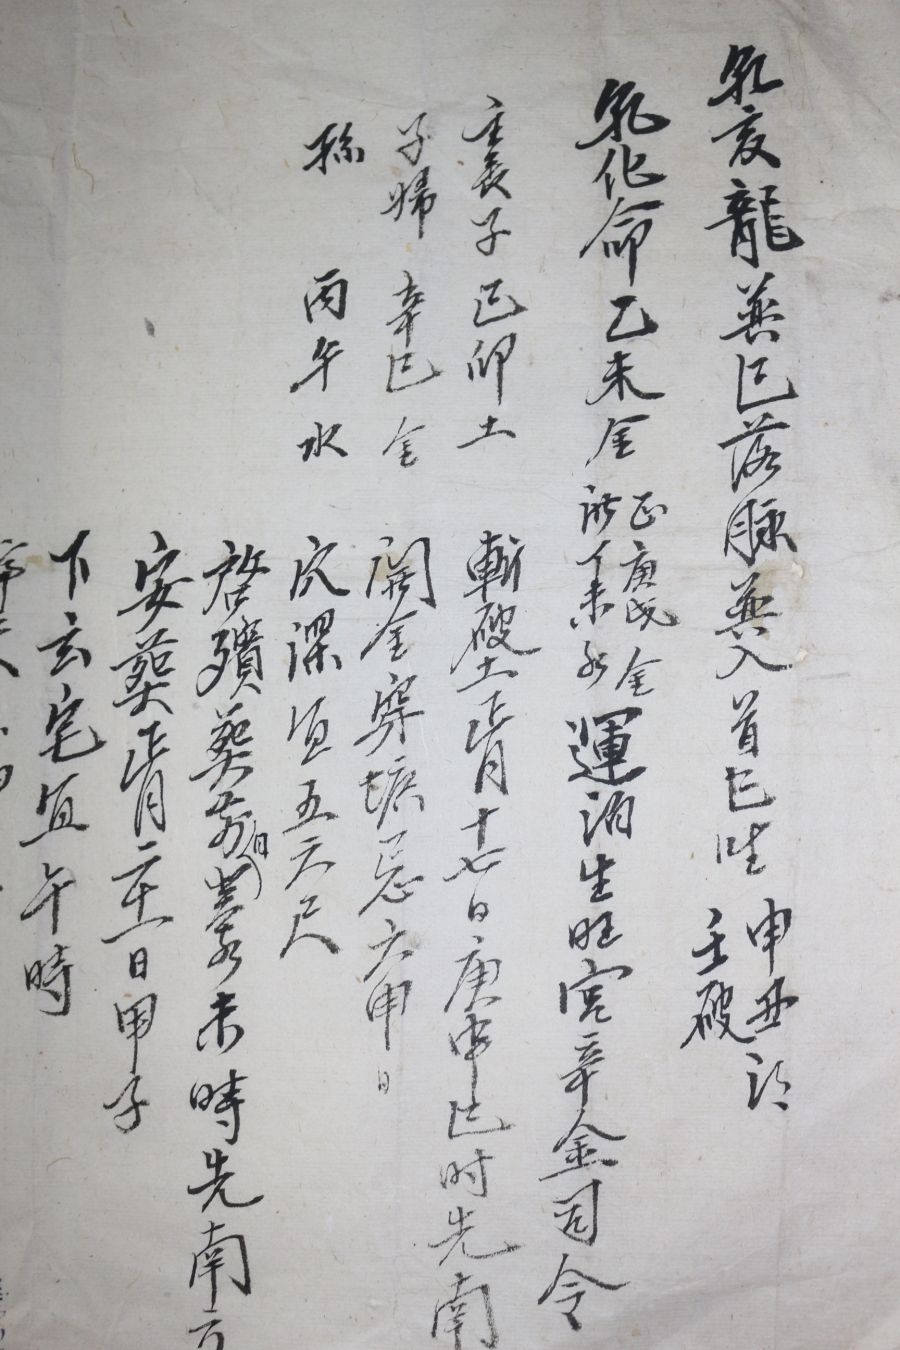 乹亥龍巽巳落脉巽入首巳坐
申酉得
壬破
乹化命乙未金
正庚戌金
所丁未水
運泊生旺宮辛金司令
主喪子己卯土
子婦辛巳金
孫丙午水
斬破土正月十七日庚申巳时先南
開金穽壙忌六甲日
穴深宜五六尺
啓殯葬前日癸亥未時先南方
安葬正月二十一日甲子
下玄宅宜午時